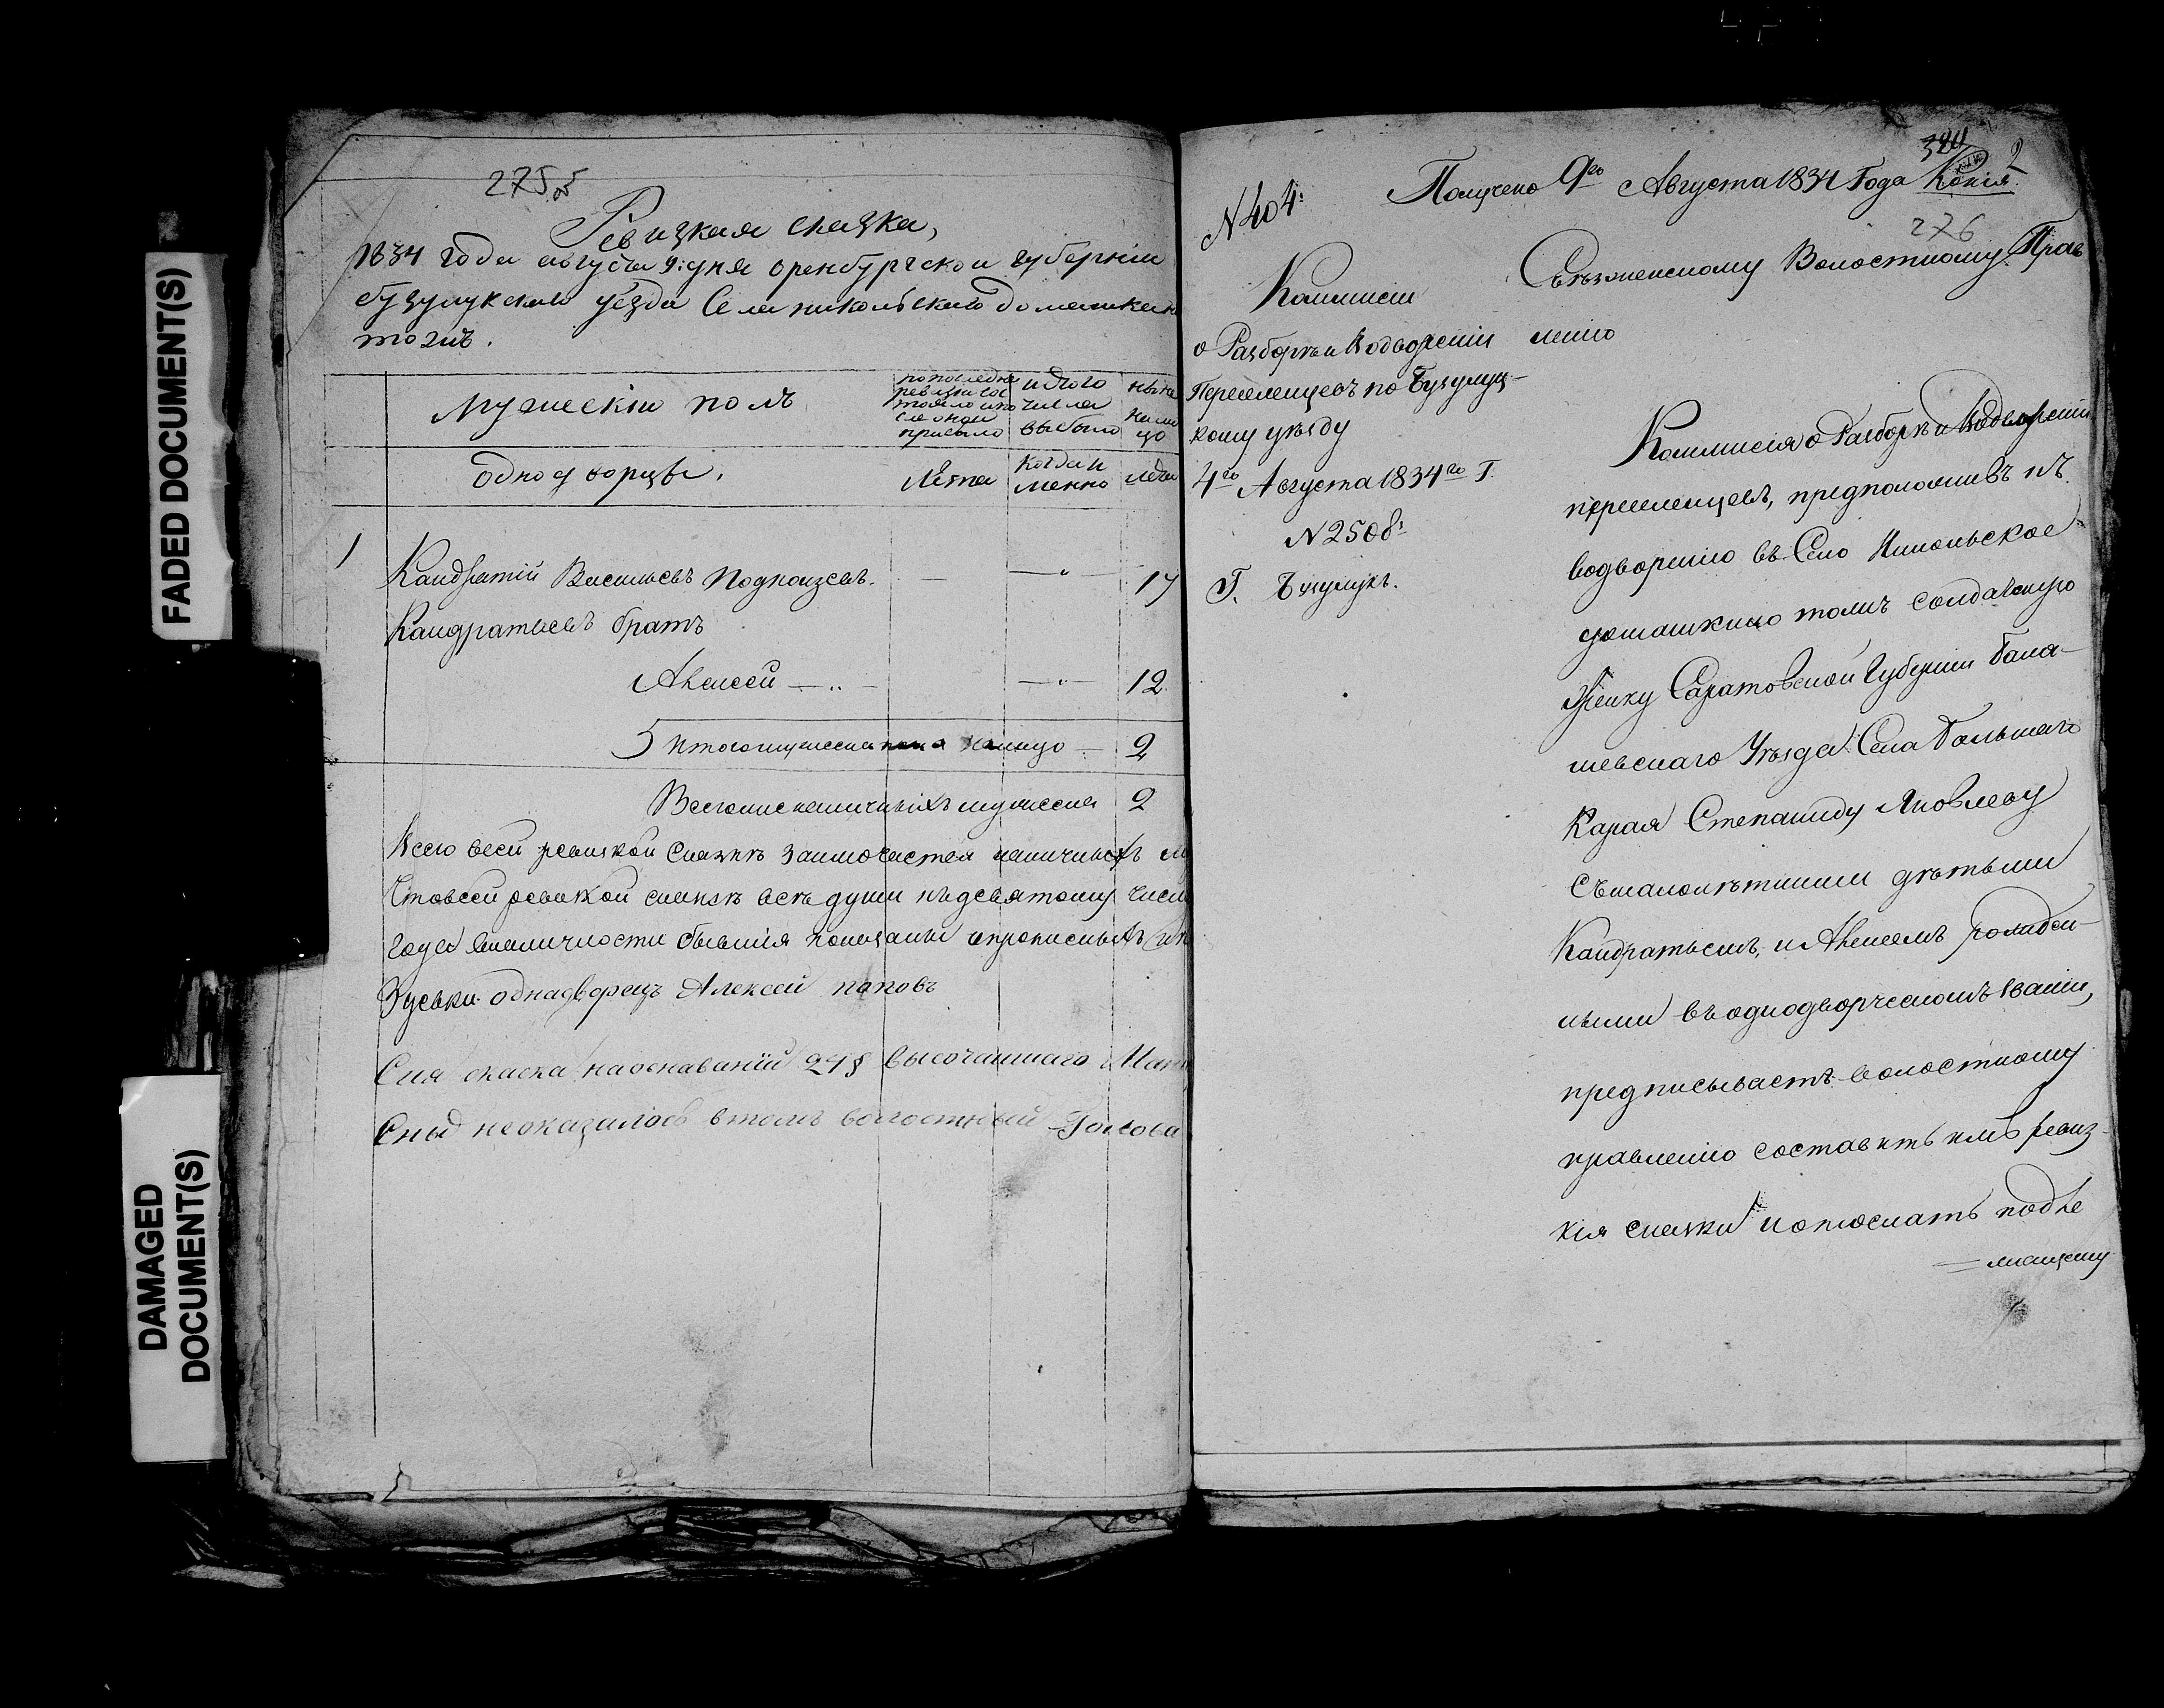 FADED DOCUMENT(S)
DAMAGED DOCUMENT(S)
275 об
Ревизкая сказка,
1834 года августа 9: дня оренбургской губернии
бузулукскаго уезда Села никольскаго домашкено
тожъ.
Мужескiй полъ
попоследне ревизiи сос тояло ипо сле оной прибыло
изтого числа выбыло
ныне на ли цо
однодворцы.
Лета
когда и менно
лета
1 Кандратiй Васильевъ Подползевъ. — — " — 17
Кандратьевъ братъ
Алексей — " — — " — 12
Итого мужеска пола налицо — 2
Всего наличныхъ мужеска 2
Всего всей ревизкой Сказкъ заключается наличныхъ м
Что всей ревизкой сказкъ всъ души къ девятому числ
года вналичности бывшiя показаны ипрописныхъ
однадворецъ Алексей поповъ
Сия скаска наоснаванiи 24 § высочаишаго Ман
неоказалось втомъ волостный Голова
№ 404:
Получено 9го Августа 1834 Года
Копiя
2
380
276
Коммисiи
о Разборъ и Водворенiи
Переселенцевъ по Бузулуц-
кому уъзду
4го Августа 1834го Г.
№ 2508:
Г. Бузулукъ.
Съезженскому Волостному Прав
ленiю
Коммисiя о Разборъ и Водворенiи
переселенцевъ, предположивъ къ
водворенiю въ Село Никольское
домашкино тожъ солдатскую
жонку Саратовской Губернiи Бала-
шевскаго Уъзда Села Большаго
Карая Степаниду Яковлеву
съ малолътними дътьми
Кандратьемъ, и Алексеемъ рожден-
ными въ однодворческомъ званiи,
предписываетъ волостному
правленiю составить имъ ревиз-
кiя сказки и отослать подле
= жащему